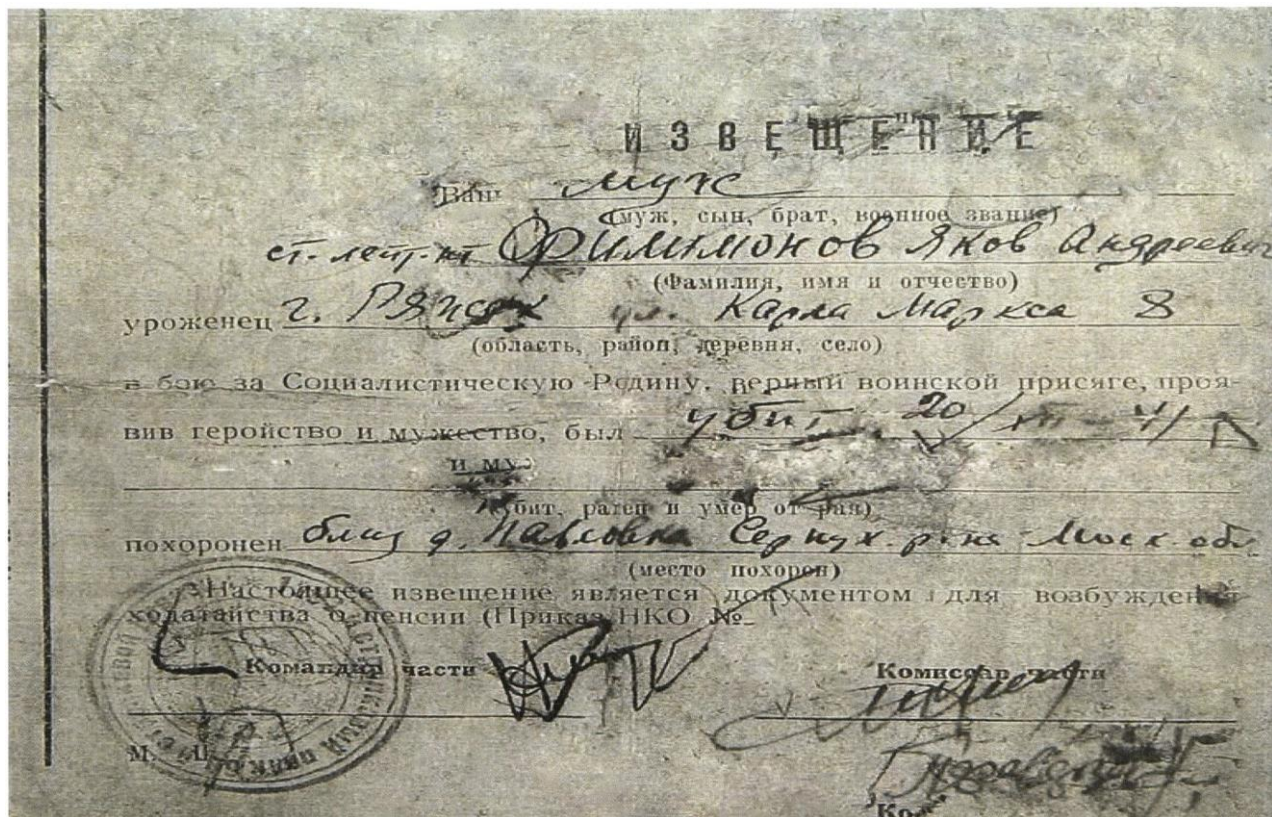 ИЗВЕЩЕНИЕ
Ваш муж
(муж, сын, брат, военное звание)
ст. лейт-нт Филимонов Яков Андреевич
(Фамилия, имя и отчество)
уроженец г. Ряжск ул. Карла Маркса 8
(область, район, деревня, село)
в бою за Социалистическую Родину, верный воинской присяге, проя-
вив геройство и мужество, был убит 20/XII-41
и му
(убит, ранен и умер от ран)
похоронен близ д. Павловка Серпух. р-на Моск. обл.
(место похорон)
Настоящее извещение является документом для возбуждения
ходатайства о пенсии (Приказ НКО №
Командир части
Комиссар части
М. П.